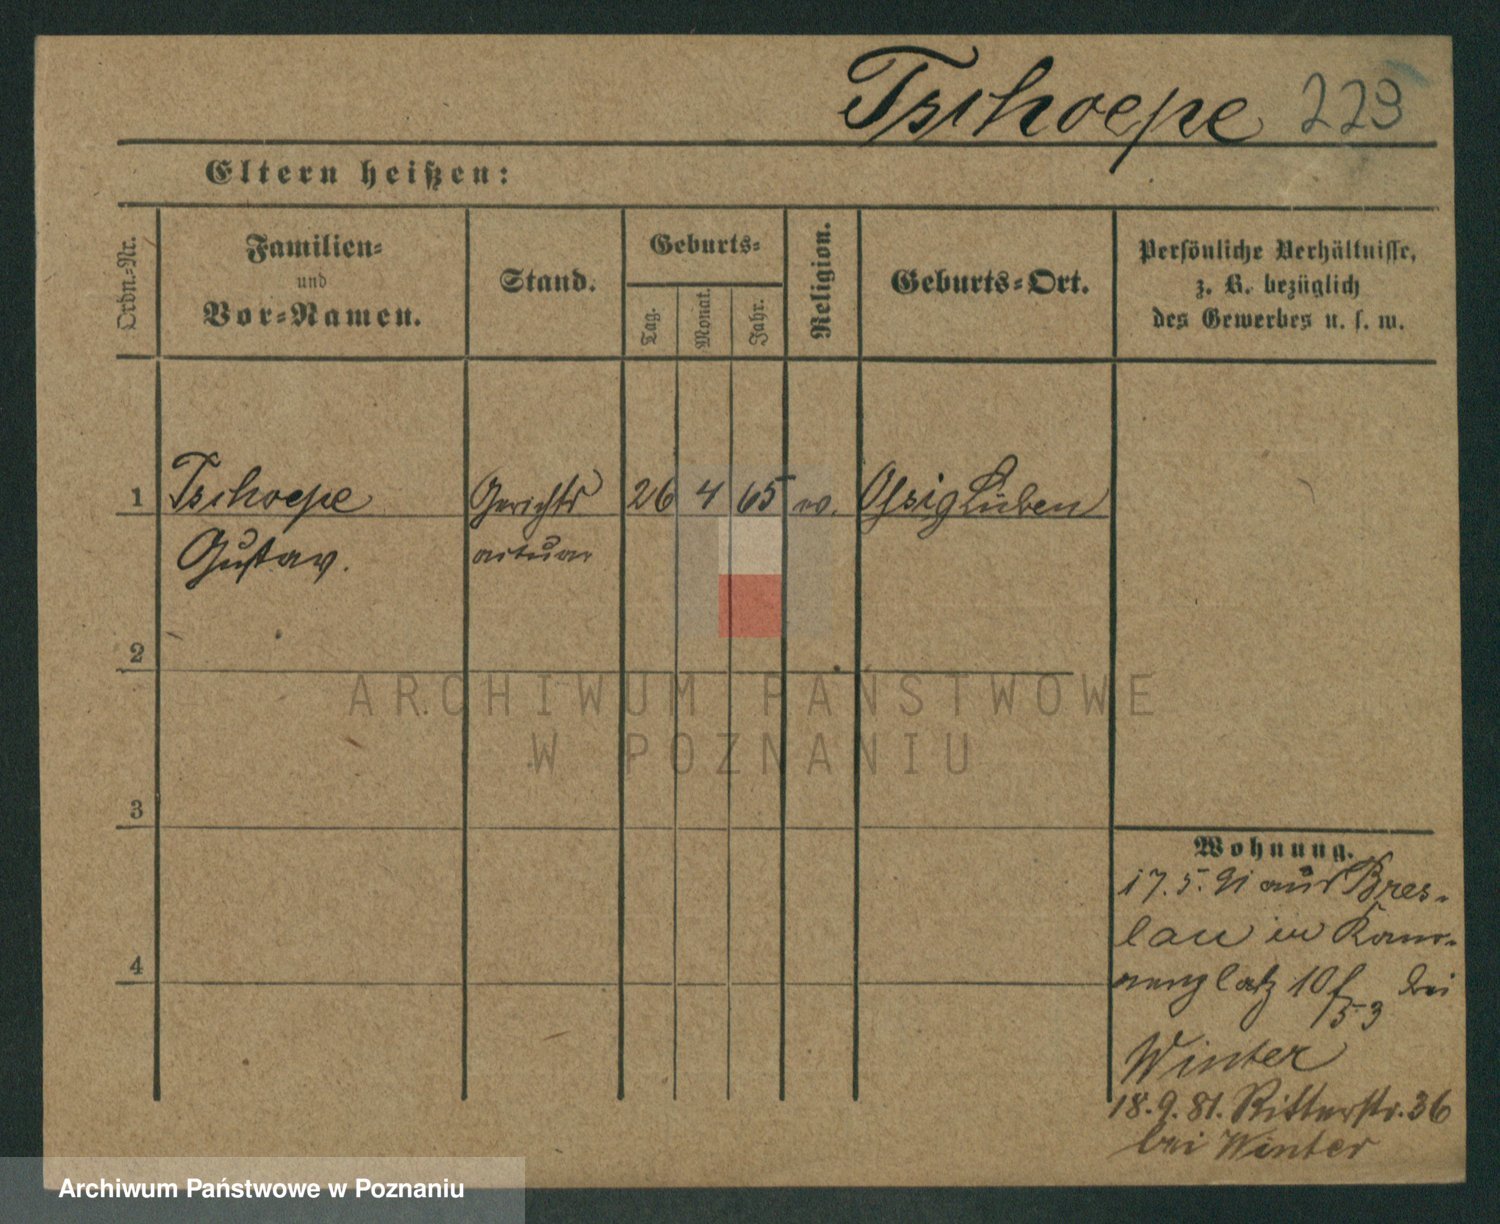 Tschoepe 223
Eltern heißen:
Ordn.=Nr.
Familien=
und
Vor=Namen.
Stand.
Geburts=
Tag.
Monat.
Jahr.
Religion.
Geburts=Ort.
Persönliche Verhältnisse,
z. B. bezüglich
des Gewerbes u. s. w.
1 Tschoepe Gerichts 26 4 65 ev. Ossig Lüben
Gustav. actuar
2
ARCHIWUM PAŃSTWOWE
W POZNANIU
3
Wohnung.
17.5.91 aus Bres-
lau in Kano-
nenplatz 10 f/53 bei
4
Winter
18.9.81. Ritterstr. 36
bei Winter
Archiwum Państwowe w Poznaniu